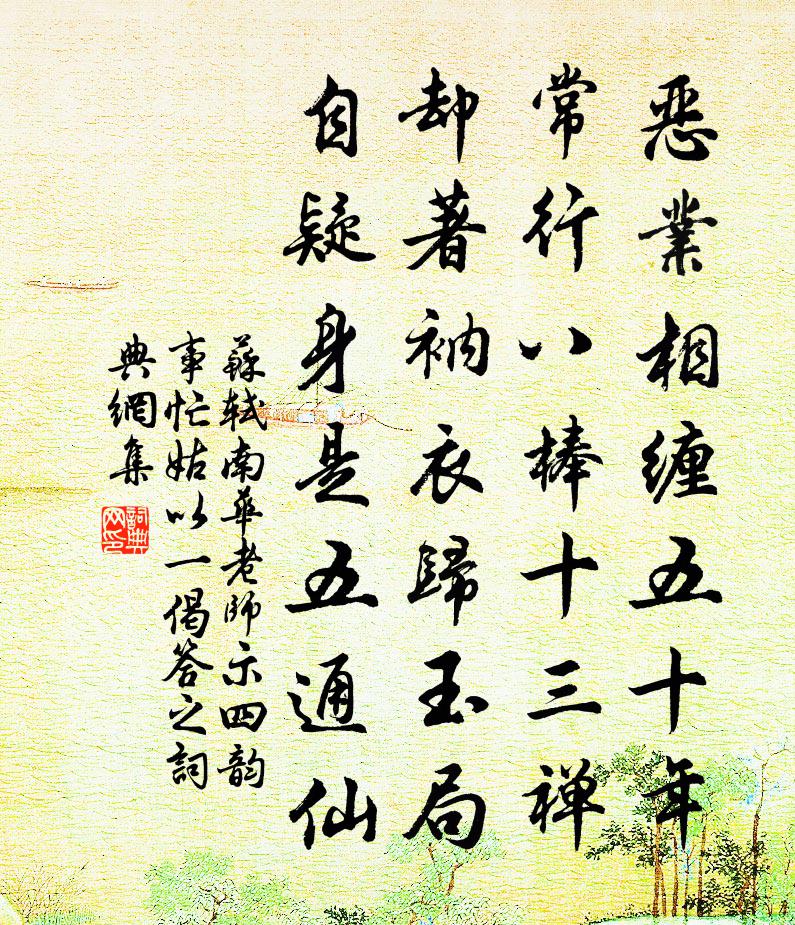 惡業相纏五十年
常行八棒十三禅
却著衲衣歸玉局
自疑身是五通仙
蘇軾南華老師示四韵
事忙姑以一偈答之詞
典網集
詞典网印